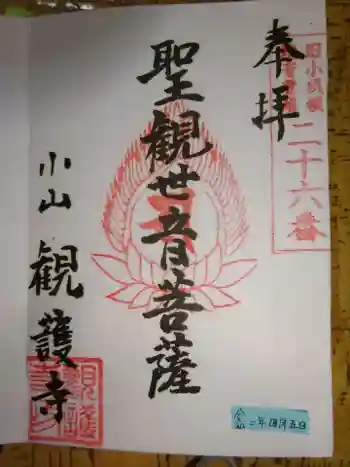 奉拝
二十六番
聖観世音菩薩
小山
観護寺
令和二年四月五日